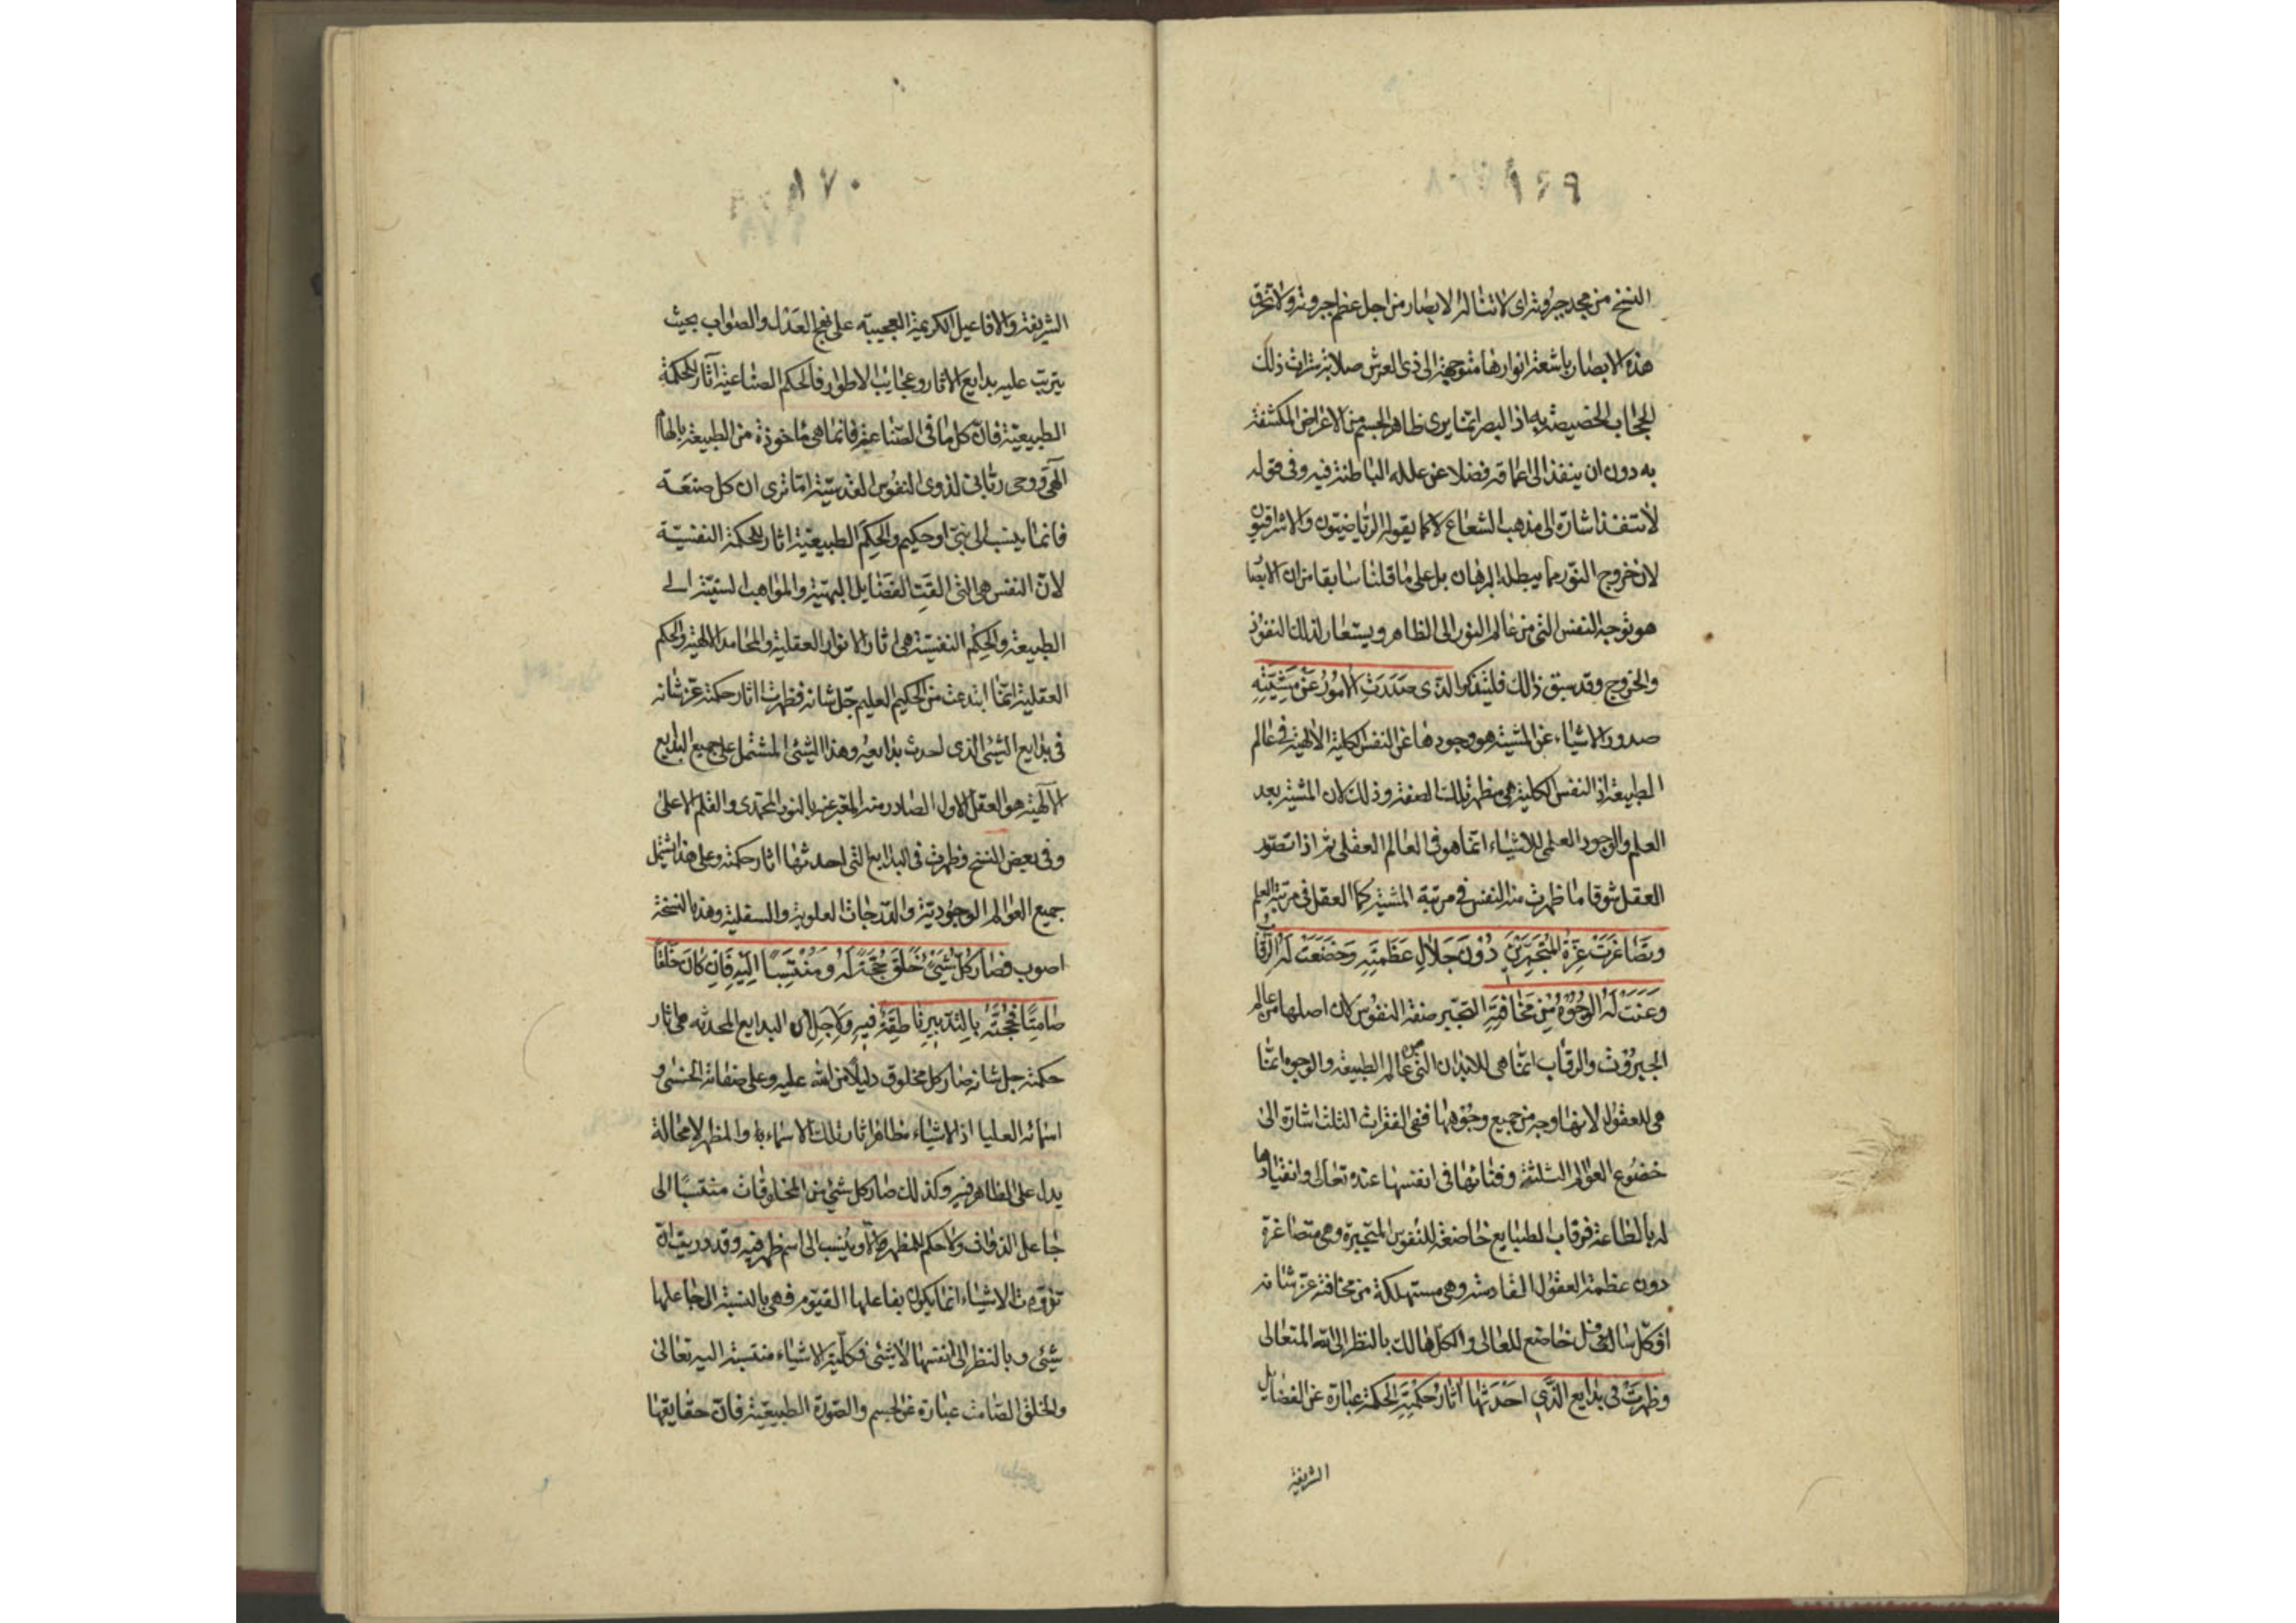 النسخ من مجد جبروته اى لا تناله الابصار من اجل عظم جبروته ولا تخرق
هذه الابصار باشعة انوارها متوجهة الى ذى العرش صلابة سترات ذلك
الحجاب الخصيصة به اذ البصر انما يرى ظاهر الجسم من الاعراض المكتنفة
به دون ان ينفذ الى اعماقه فضلا عن علله الباطنة فيه وفى قوله
لا تنفذ اشارة الى مذهب الشعاع لا كما يقوله الرياضيون والاشراقيون
لان خروج النور مما يبطله البرهان بل على ما قلنا سابقا من ان الابصا
هو توجه النفس التى من عالم النور الى الظاهر ويستعار لذلك النفوذ
والخروج وقد سبق ذلك فليتذكر الذى صدرت الامور عن مشيته
صدور الاشياء عن المشية هو وجودها عن النفس الكلية الالهية فى عالم
الطبيعة اذ النفس الكلية هى مظهر تلك الصفة وذلك لان المشية بعد
العلم والوجود العلمى للاشياء انما هو فى العالم العقلى ثم اذا تصور
العقل شوقا ما ظهرت منه النفس فى مرتبة المشية كما العقل فى مرتبة العلم
وتصاغرت عزة المتجبرين دون جلال عظمته وخضعت له الرقاب
وعنت له الوجوه من مخافته التجبر صفة النفوس لان اصلها من عالم
الجبروت والرقاب انما هى للابدان التى من عالم الطبيعة والوجوه انما
هى للعقول لانها وجه من جميع وجوهها ففى الفقرات الثلث اشارة الى
خضوع العوالم الثلثة وفنائها فى انفسها عنده تعالى وانقيادها
له بالطاعة فرقاب الطبايع خاضعة للنفوس المتجبرة وهى متصاغرة
دون عظمة العقول القادسة وهى مستهلكة من مخافته عز شانه
او كل سافل خاضع للعالى والكل هالك بالنظر الى الله المتعالى
وظهرت فى بدايع الذى احدثها اثار حكمته الحكمة عبارة عن الفضايل
الشريفة
١٧٠
الشريفة والافاعيل الكريمة العجيبه على نهج العدل والصواب بحيث
يترتب عليه بدايع الاثار وعجايب الاطوار فالحكم الصناعية آثار للحكمة
الطبيعية فان كل ما فى الصناعية فانما هى ماخوذة من الطبيعة بالهام
الهى ووحى ربانى لذوى النفوس القدسية اما ترى ان كل صنعة
فانما ينسب الى نبى او حكيم والحكم الطبيعية اثار للحكمة النفسية
لان النفس هى التى القت الفضايل البهية والمواهب السنية الى
الطبيعة والحكم النفسية هى اثار الانوار العقلية والمحامد الالهية والحكم
العقلية انما ابتدعت من الحكيم العليم جل شانه فظهرت اثار حكمته عز شانه
فى بدايع الشئ الذى احدث بدايعه وهذا الشئ المشتمل على جميع البدايع
الالهية هو العقل الاول الصادر منه المعبر عنه بالنور المحمدى والقلم الاعلى
وفى بعض النسخ وظهرت فى البدايع التى احدثها اثار حكمته وعلى هذا يشمل
جميع العوالم الوجودية والدرجات العلوية والسفلية وهذه النسخة
اصوب فصار كل شئ خلق حجة له ومنتسبا اليه فان كان خلقا
صامتا فحجته بالتدبير ناطقة فيه ولاجل ان البدايع المحدثه هى اثار
حكمته جل شانه صار كل مخلوق دليلا من الله عليه وعلى صفاته الحسنى و
اسمائه العليا اذ الاشياء مظاهر اثار تلك الاسماء والمظهر لا محالة
يدل على الظاهر فيه وكذلك صار كل شئ من المخلوقات منتسبا الى
جاعل الذوات ولا حكم للمظهر الا وينسب الى اسم ظهر فيه وقد دريت ان
تذوت الاشياء انما يكون بفاعلها القيوم فهى بالنسبة الى جاعلها
شئ وبالنظر الى انفسها لا شئ فكلية الاشياء منتسبة اليه تعالى
والخلق الصامت عبارة عن الجسم والصورة الطبيعية فان حقايقها